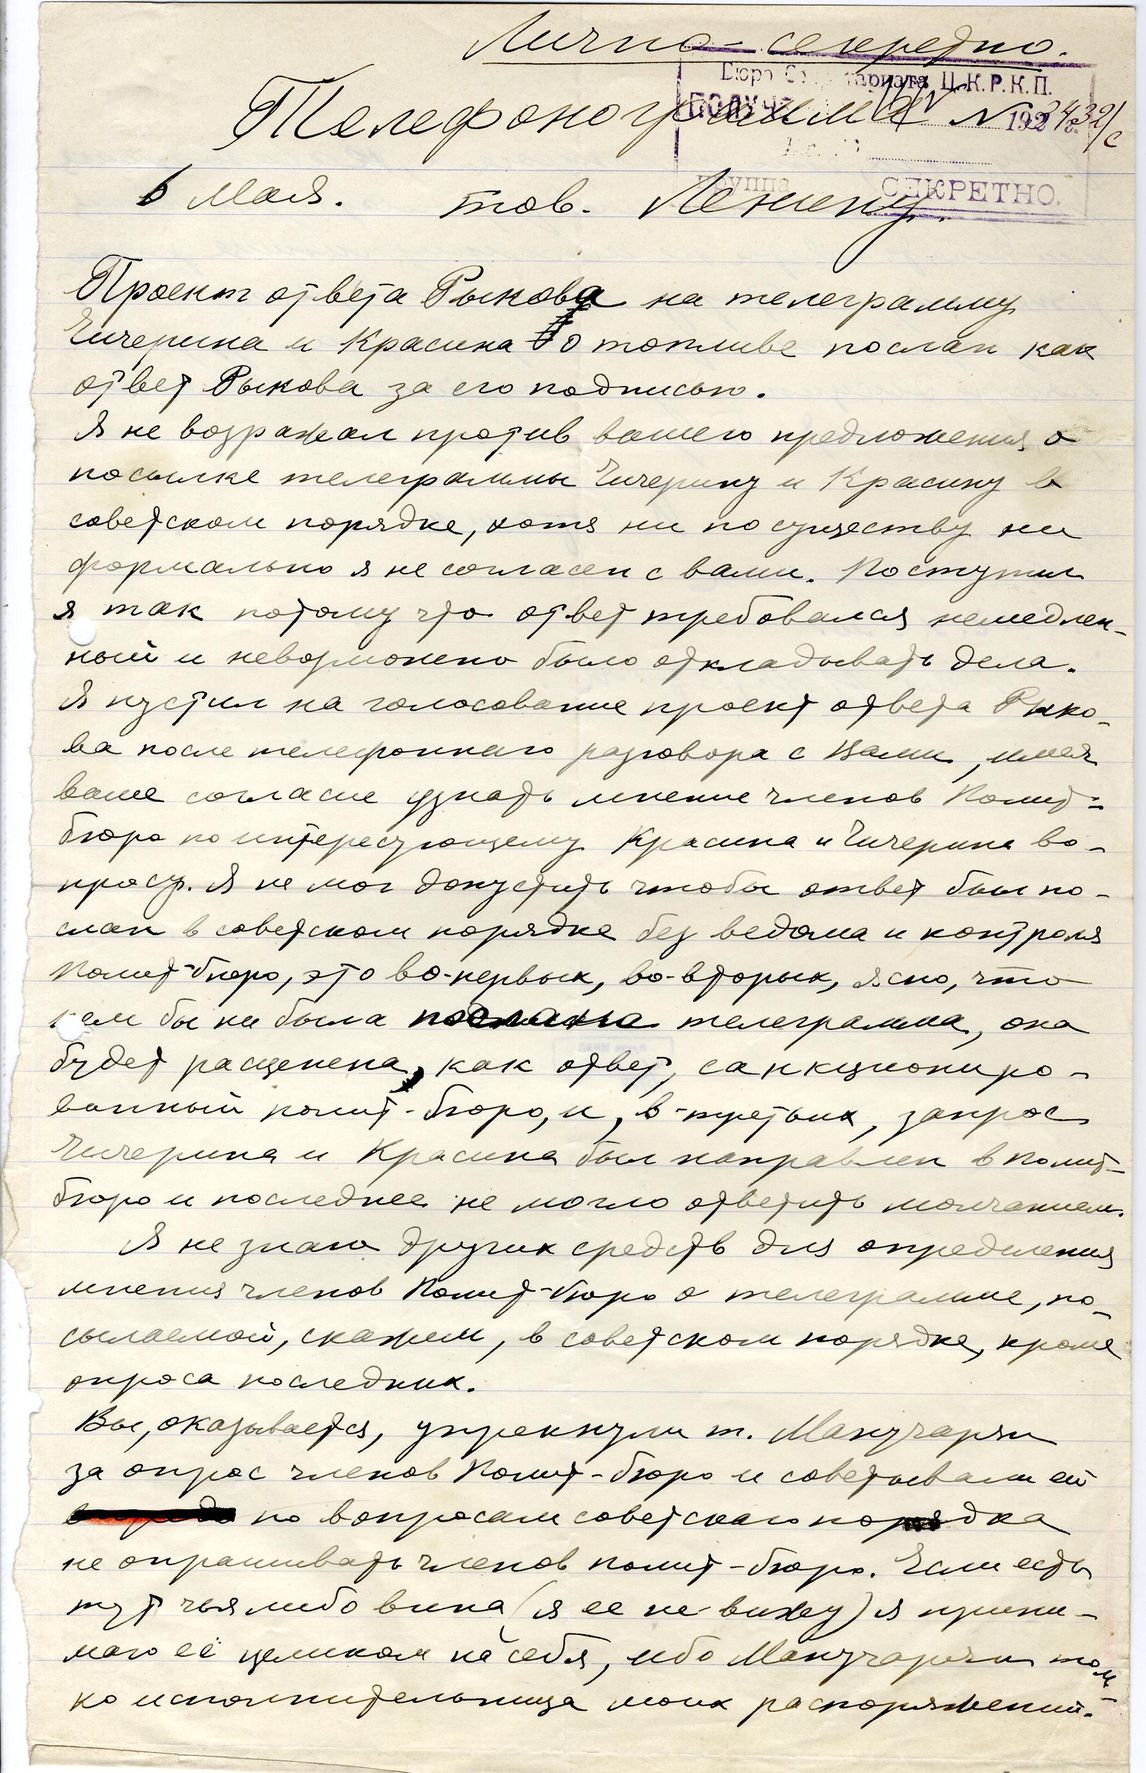 Лично-секретно.
Бюро Секретариата Ц.К.Р.К.П.
Телефонограмма
№ 192
СЕКРЕТНО.
группа
6 мая. тов. Ленину.
Проект ответа Рыкова на телеграмму
Чичерина и Красина о топливе послан как
ответ Рыкова за его подписью.
Я не возражал против вашего предложения о
посылке телеграммы Чичерину и Красину в
советском порядке, хотя ни по существу ни
формально я не согласен с вами. Поступил
я так потому что ответ требовался немедлен-
ный и невозможно было откладывать дела.
Я пустил на голосование проект ответа Рыко-
ва после телефонного разговора с Вами, имея
ваше согласие узнать мнение членов Полит-
бюро по интересующему Красина и Чичерина во-
просу. Я не мог допустить чтобы ответ был по-
слан в советском порядке без ведома и контроля
Полит-бюро, это во-первых, во-вторых, ясно, что
кем бы ни была послана телеграмма, она
будет расценена, как ответ, санкциониро-
ванный полит-бюро, и, в-третьих, запрос
Чичерина и Красина был направлен в Полит-
бюро и последнее не могло ответить молчанием.
Я не знаю других средств для определения
мнения членов Полит-бюро о телеграмме, по-
сылаемой, скажем, в советском порядке, кроме
опроса последних.
Вы, оказывается, упрекнули т. Манучарян
за опрос членов Полит-бюро и советывали ей
по вопросам советского порядка
не опрашивать членов полит-бюро. Если есть
тут чья либо вина (я ее не вижу) я прини-
маю её целиком на себя, ибо Манучарян толь-
ко исполнительница моих распоряжений.